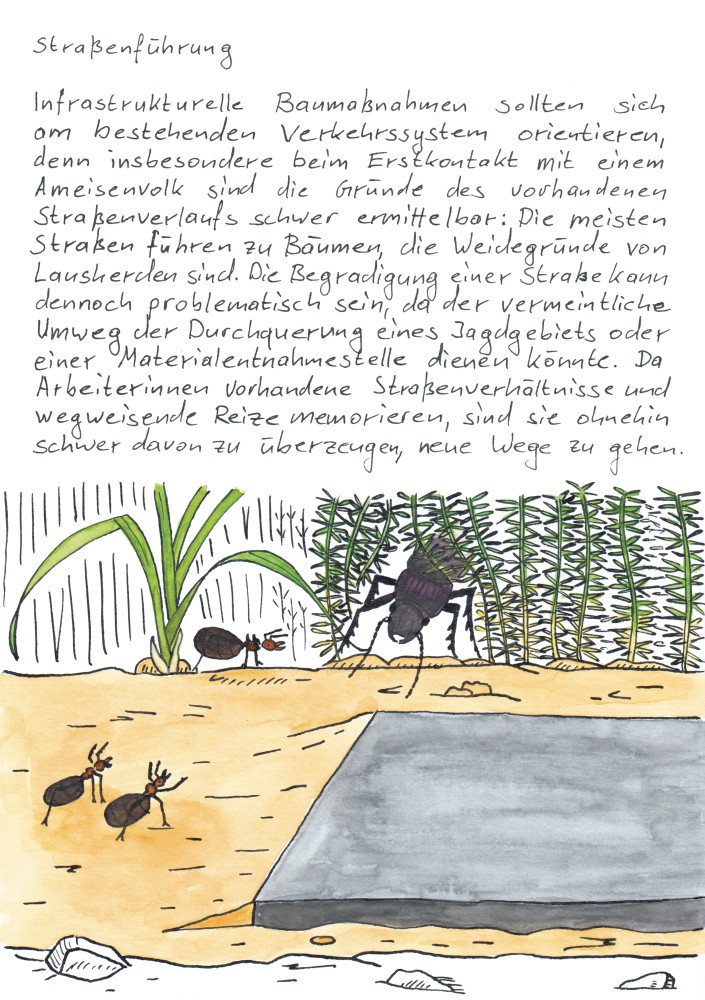 Straßenführung
Infrastrukturelle Baumaßnahmen sollten sich
am bestehenden Verkehrssystem orientieren,
denn insbesondere beim Erstkontakt mit einem
Ameisenvolk sind die Gründe des vorhandenen
Straßenverlaufs schwer ermittelbar: Die meisten
Straßen führen zu Bäumen, die Weidegründe von
Lausherden sind. Die Begradigung einer Straße kann
dennoch problematisch sein, da der vermeintliche
Umweg der Durchquerung eines Jagdgebiets oder
einer Materialentnahmestelle dienen könnte. Da
Arbeiterinnen vorhandene Straßenverhältnisse und
wegweisende Reize memorieren, sind sie ohnehin
schwer davon zu überzeugen, neue Wege zu gehen.